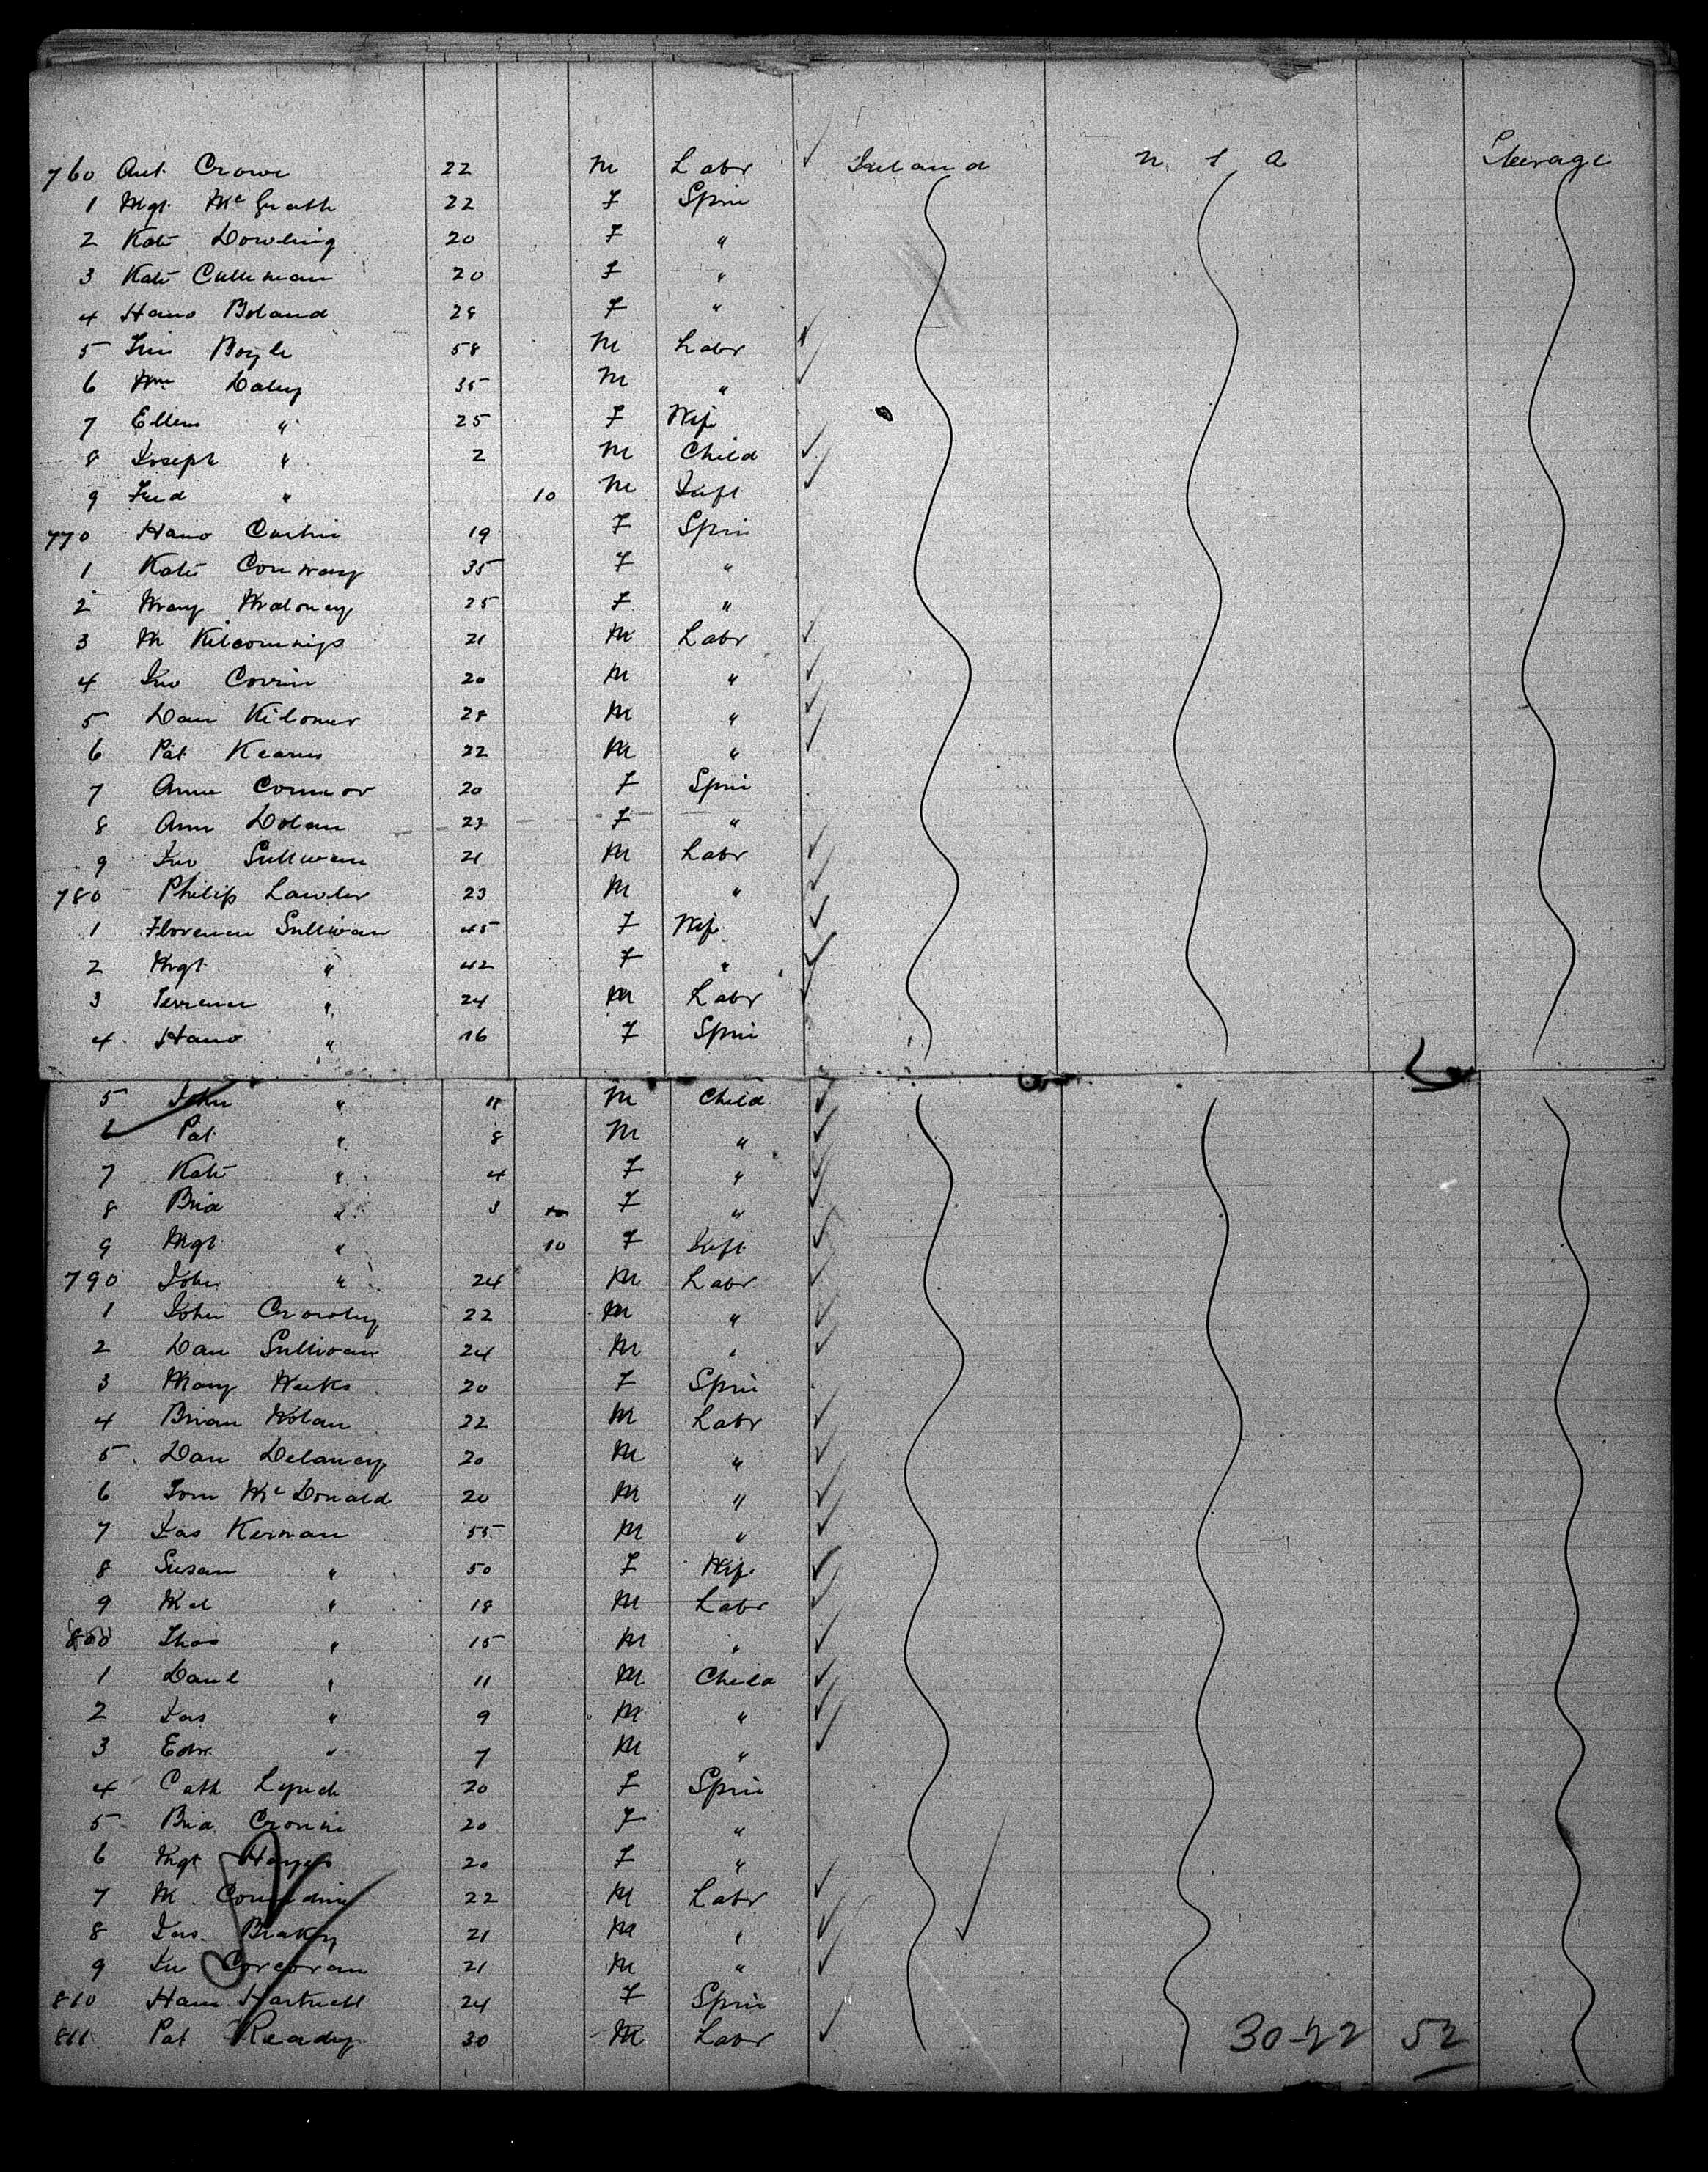 760 Ant. Crowe 22 M Labr Ireland U S A Steerage
1 Mgt. McGrath 22 F Spin
2 Kate Dowling 20 F "
3 Kate Culleman 20 F "
4 Hano Boland 28 F "
5 Boyle 58 M Labr
6 Wm Daley 35 M "
7 Ellen " 25 F Wife
8 Joseph " 2 M Child
9 Fred " 10 M Inft
770 Hano 19 F Spin
1 Kate Conway 35 F "
2 Mary Maloney 25 F "
3 M Kilcommips 21 M Labr
4 Jno 20 M "
5 Dan 28 M "
6 Pat Kearns 22 M "
7 Anne Connor 20 F Spin
8 Ann Dolan 23 F "
9 Jno Sullivan 21 M Labr
780 Philip Lawler 23 M "
1 Florence Sullivan 45 F Wife
2 Mrgt " 42 F "
3 Terrence " 24 M Labr
4 Hano " 16 F Spin
5 John " 11 M Child
6 Pat " 8 M "
7 Kate " 4 F "
8 Brid " 3 F "
9 Mgt " 10 F Inft
790 John " 24 M Labr
1 John Crowley 22 M "
2 Dan Sullivan 24 M "
3 Mary Weeks 20 F Spin
4 Brian Nolan 22 M Labr
5 Dan Delaney 20 M "
6 Tom McDonald 20 M "
7 Jas Kernan 55 M "
8 Susan " 50 F Wife
9 Ml " 18 M Labr
800 Thos " 15 M "
1 Danl " 11 M Child
2 Jas " 9 M "
3 Edw. " 7 M "
4 Cath Lynch 20 F Spin
5 Brid. Cronin 20 F "
6 Mgt Hayes 20 F "
7 M. Considine 22 M Labr
8 Jas. 21 M "
9 Corcoran 21 M "
810 Hano Hartnett 24 F Spin
811 Pat Ready 30 M Labr 30-22 52